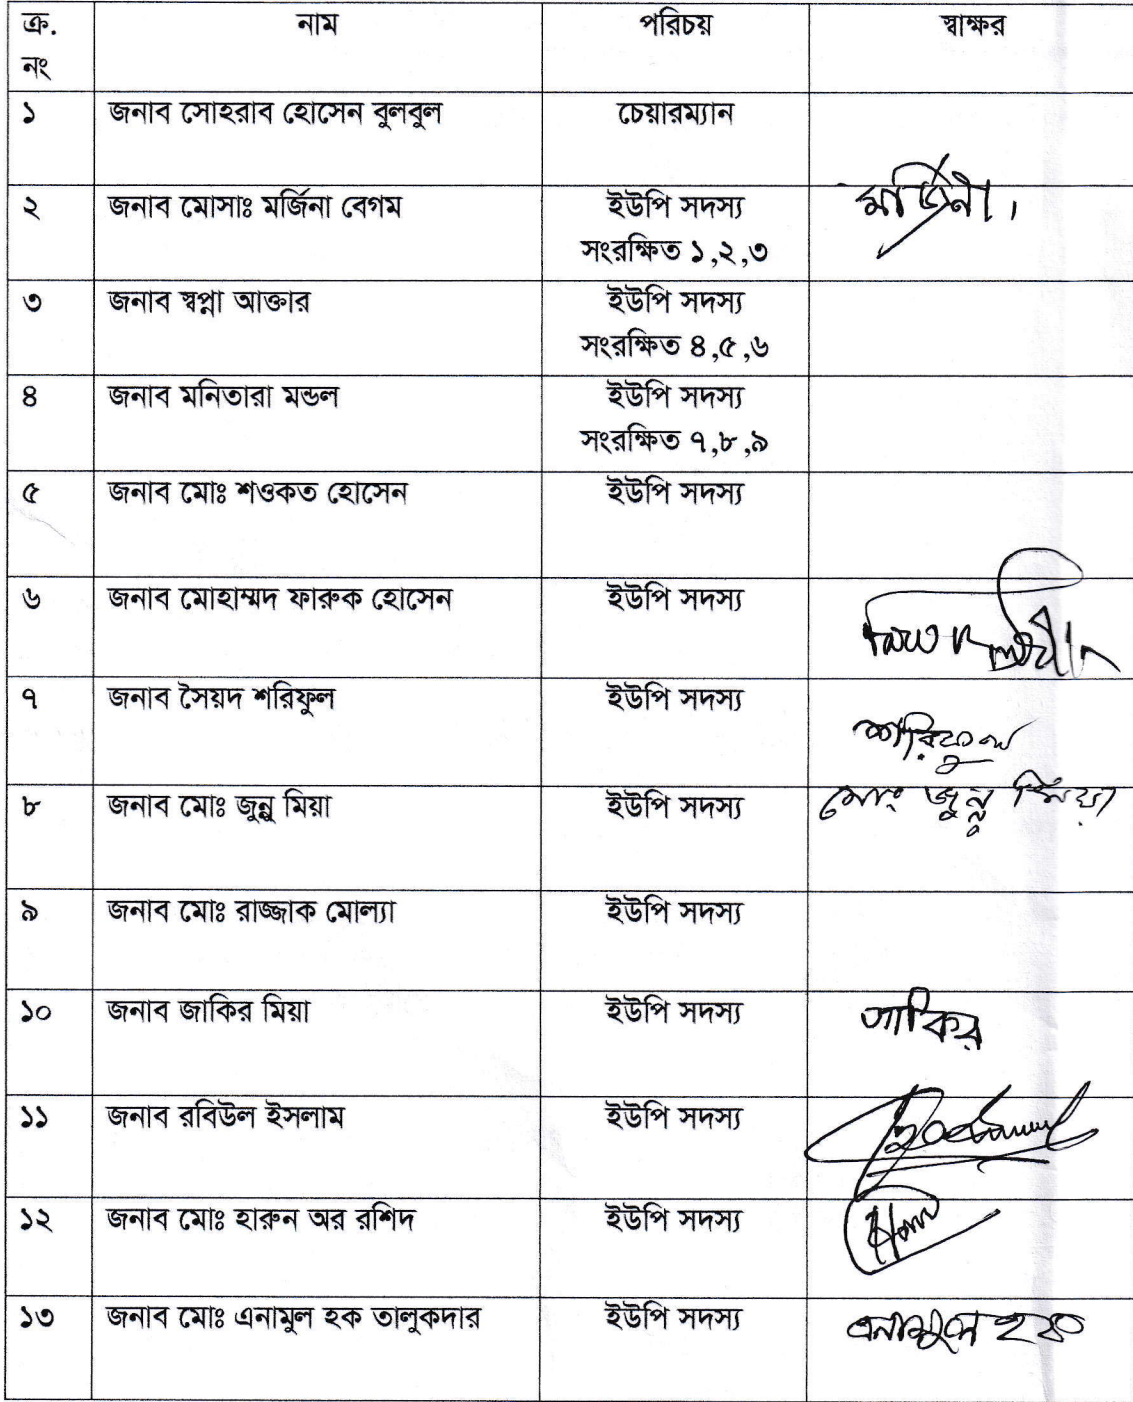 ক্র. নাম পরিচয় স্বাক্ষর
নং
১ জনাব সোহরাব হোসেন বুলবুল চেয়ারম্যান
২ জনাব মোসাঃ মর্জিনা বেগম ইউপি সদস্য মর্জিনা।
সংরক্ষিত ১,২,৩
৩ জনাব স্বপ্না আক্তার ইউপি সদস্য
সংরক্ষিত ৪,৫,৬
৪ জনাব মনিতারা মন্ডল ইউপি সদস্য
সংরক্ষিত ৭,৮,৯
৫ জনাব মোঃ শওকত হোসেন ইউপি সদস্য
৬ জনাব মোহাম্মদ ফারুক হোসেন ইউপি সদস্য
৭ জনাব সৈয়দ শরিফুল ইউপি সদস্য শরিফুল
৮ জনাব মোঃ জুন্নু মিয়া ইউপি সদস্য মোঃ জুন্নু মিয়া
৯ জনাব মোঃ রাজ্জাক মোল্যা ইউপি সদস্য
১০ জনাব জাকির মিয়া ইউপি সদস্য জাকির
১১ জনাব রবিউল ইসলাম ইউপি সদস্য
১২ জনাব মোঃ হারুন অর রশিদ ইউপি সদস্য
১৩ জনাব মোঃ এনামুল হক তালুকদার ইউপি সদস্য এনামুল হক